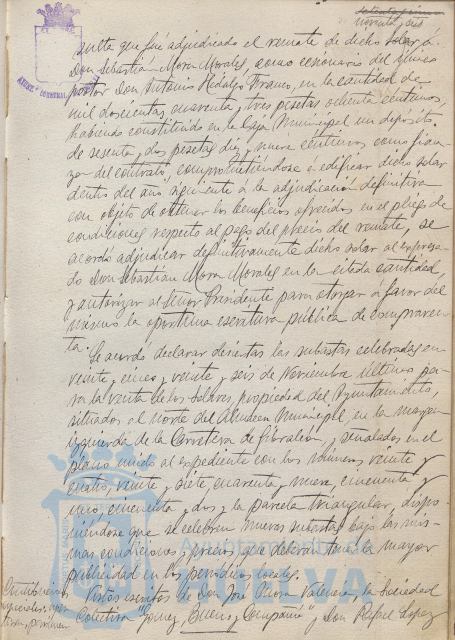 setenta y cinco
noventa y seis
sulta que fué adjudicado el remate de dicho solar á
Don Sebastián Mora Morales, como cesionario del mejor
postor Don Antonio Hidalgo Franco, en la cantidad de
mil doscientas cuarenta y tres pesetas ochenta céntimos,
habiendo constituido en la Caja Municipal un depósito
de sesenta y dos pesetas diez y nueve céntimos como fian-
za del contrato, comprometiéndose á edificar dicho solar
dentro del año siguiente á la adjudicación definitiva
con objeto de obtener los beneficios ofrecidos en el pliego de
condiciones respecto al pago del precio del remate, se
acordó adjudicar definitivamente dicho solar al expresa-
do Don Sebastián Mora Morales en la citada cantidad,
y autorizar al Señor Presidente para otorgar á favor del
mismo la oportuna escritura pública de compraven-
ta.
Se acordó declarar desiertas las subastas celebradas en
veinte y cinco y veinte y seis de Noviembre último pa-
ra la venta de los solares, propiedad del Ayuntamiento,
situados al norte del Almacen Municipal, en la margen
izquierda de la Carretera de Gibraleón, y señalados en el
plano unido al expediente con los números veinte y
cuatro, veinte y siete cuarenta y nueve, cincuenta y
uno, cincuenta y dos y la parcela triangular, dispo-
niéndose que se celebren nuevas subastas bajo las mis-
mas condiciones y precios, que deberán tener la mayor
publicidad en los periódicos locales.
Vistos escritos de Don José Mora Valencia, la Sociedad
Colectiva "Gómez, Bueno y Compañía" y Don Rafael López
Ayuntamiento de